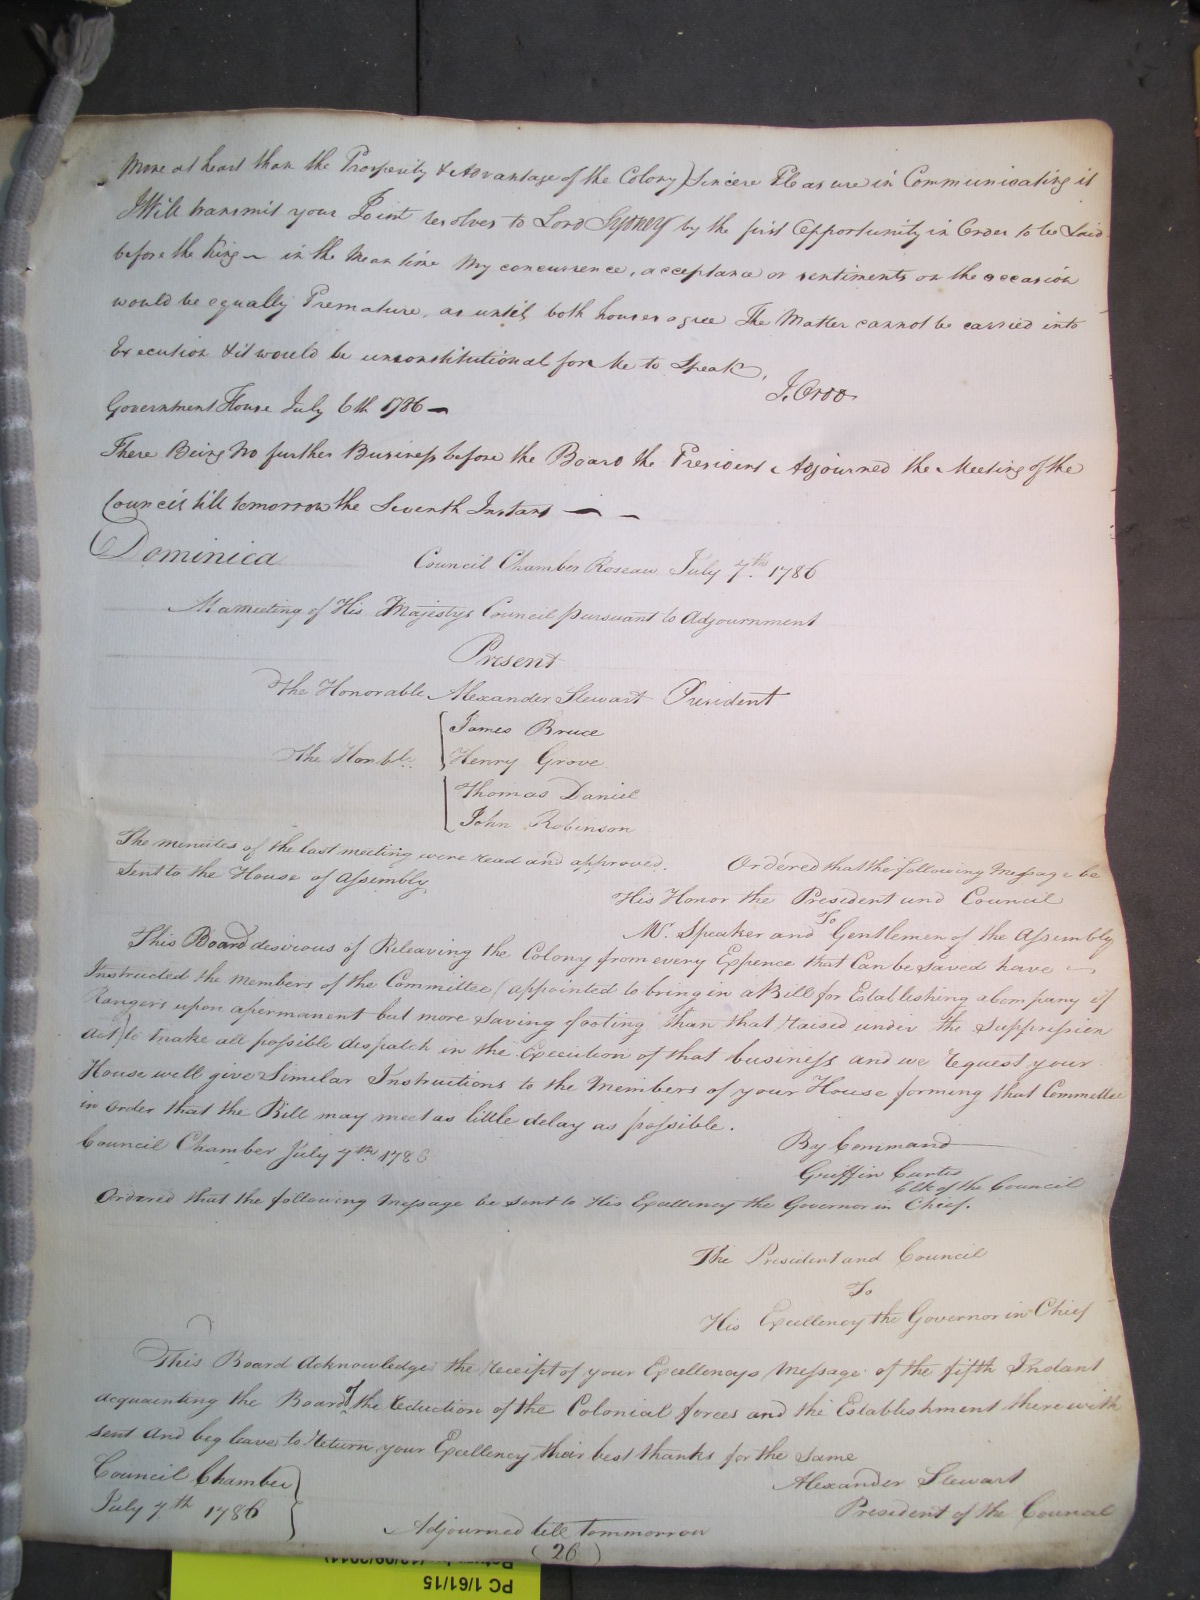 More at heart than the Prosperity & Advantage of the Colony) Sincere Pleasure in Communicating it
I Will transmit your Joint resolves to Lord Sydney by the first Opportunity in Order to be Laid
before the King — in the Mean time My concurrence, acceptance or sentiments on the occasion
would be equally Premature, as until both houses agree The Matter cannot be carried into
Execution & it would be unconstitutional for Me to Speak,
J. Orde
Government House July 6th 1786 —
There Being No further Business before the Board the President Adjourned the Meeting of the
Council till tomorrow the Seventh Instant — —
Dominica
Council Chamber Roseau July 7th. 1786
At a meeting of His Majestys Council pursuant to Adjournment
Present
The Honorable Alexander Stewart President
James Bruce
The Honble. Henry Grove
Thomas Daniel
John Robinson
The minutes of the last meeting were read and approved. Ordered that the following Message be
Sent to the House of Assembly
His Honor the President and Council
To
Mr. Speaker and Gentlemen of the Assembly
This Board desirous of Releaving the Colony from every Expence that Can be Saved have
Instructed the members of the Committee (appointed to bring in a Bill for Establishing a Company of
Rangers upon a permanent but more Saving footing than that raised under the Suppression
Act) to make all possible despatch in the Execution of that business and we request your
House will give Similar Instructions to the Members of your House forming that Committee
in order that the Bill may meet as little delay as possible.
By Command
Council Chamber July 7th 1786
Griffin Curtis
Clk of the Council
Ordered that the following Message be Sent to His Excellency the Governor in Chief.
The President and Council
To
His Excellency the Governor in Chief
This Board Acknowledge the receipt of your Excellencys Message of the fifth Instant
acquainting the Board of the reduction of the Colonial forces and the Establishment therewith
sent And beg leave to return your Excellency their best thanks for the Same
Council Chamber
Alexander Stewart
July 7th 1786
President of the Council
Adjourned till tommorrow
(26)
PC 1/61/15